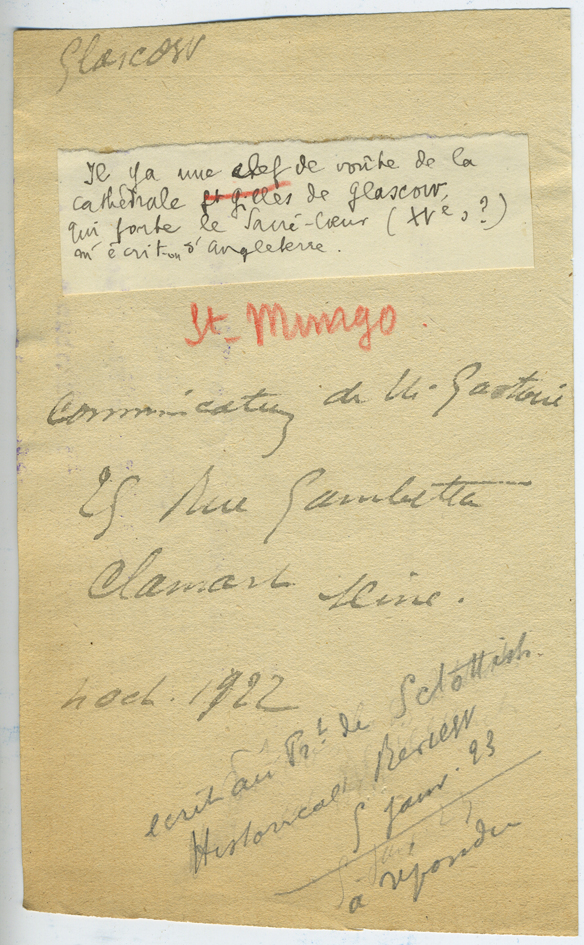 Glascow
Il y a une clef de voûte de la
cathédrale St Gilles de Glascow,
qui porte le Sacré-Cœur (XVe s ?)
m'écrit-on d'Angleterre.
St-Mungo.
Communication de Mr Gastoué
25 Rue Gambetta
Clamart Seine.
4 oct. 1922
écrit au Prt de Schottish
Historical Review
5 janv. 23
a répondu